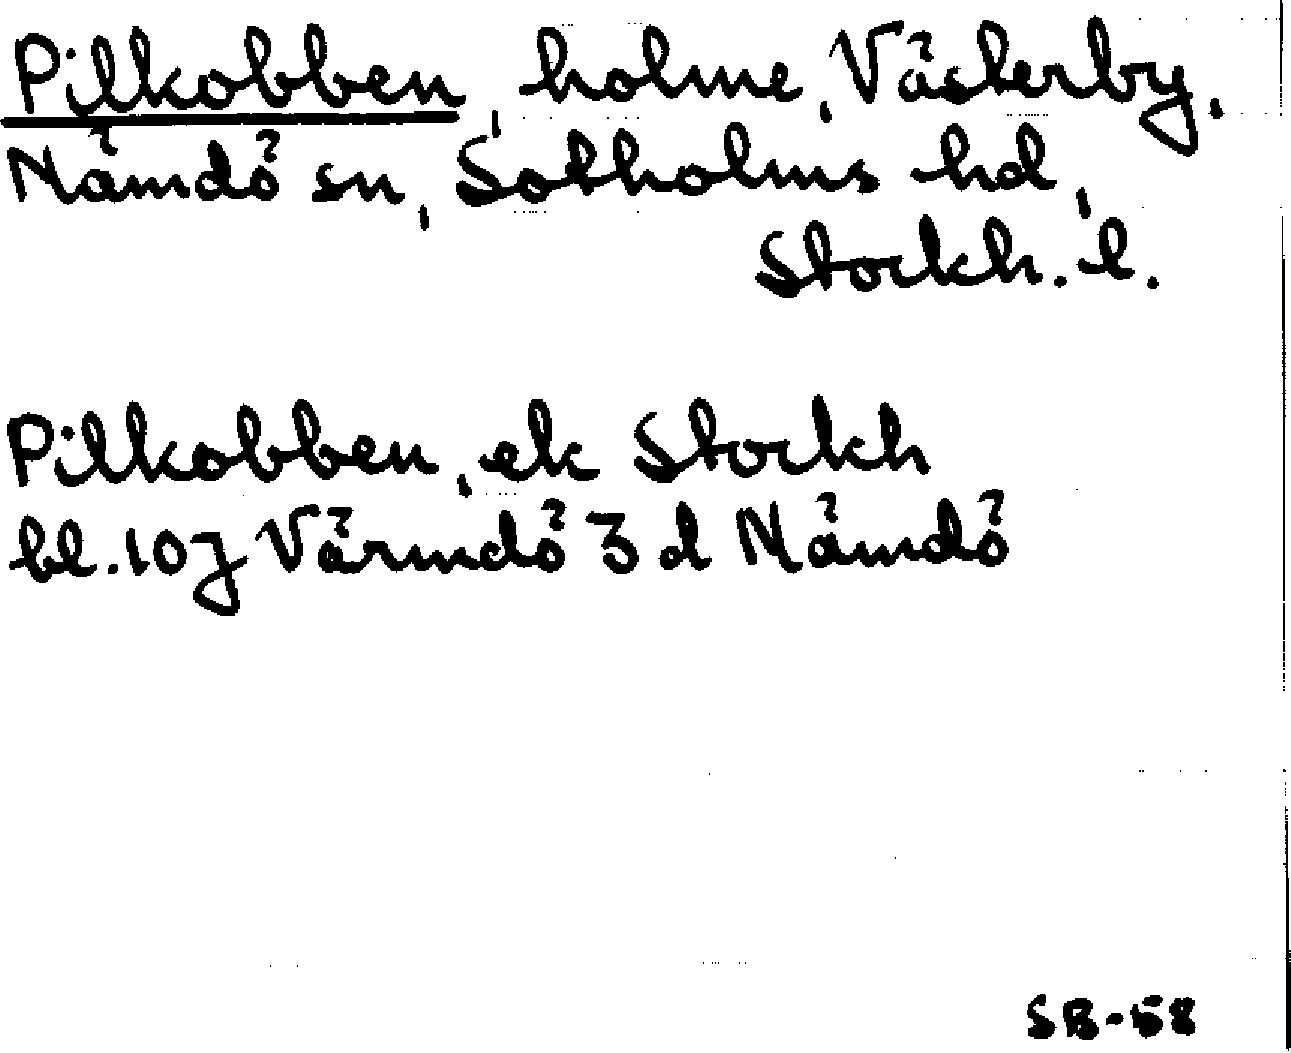 Pilkobben, holme, Västerby,
Nämdö sn, Sotholms hd,
Stockh. l.
Pilkobben, ek Stockh
bl. 107 Värmdö 3 d Nämdö
SB-58